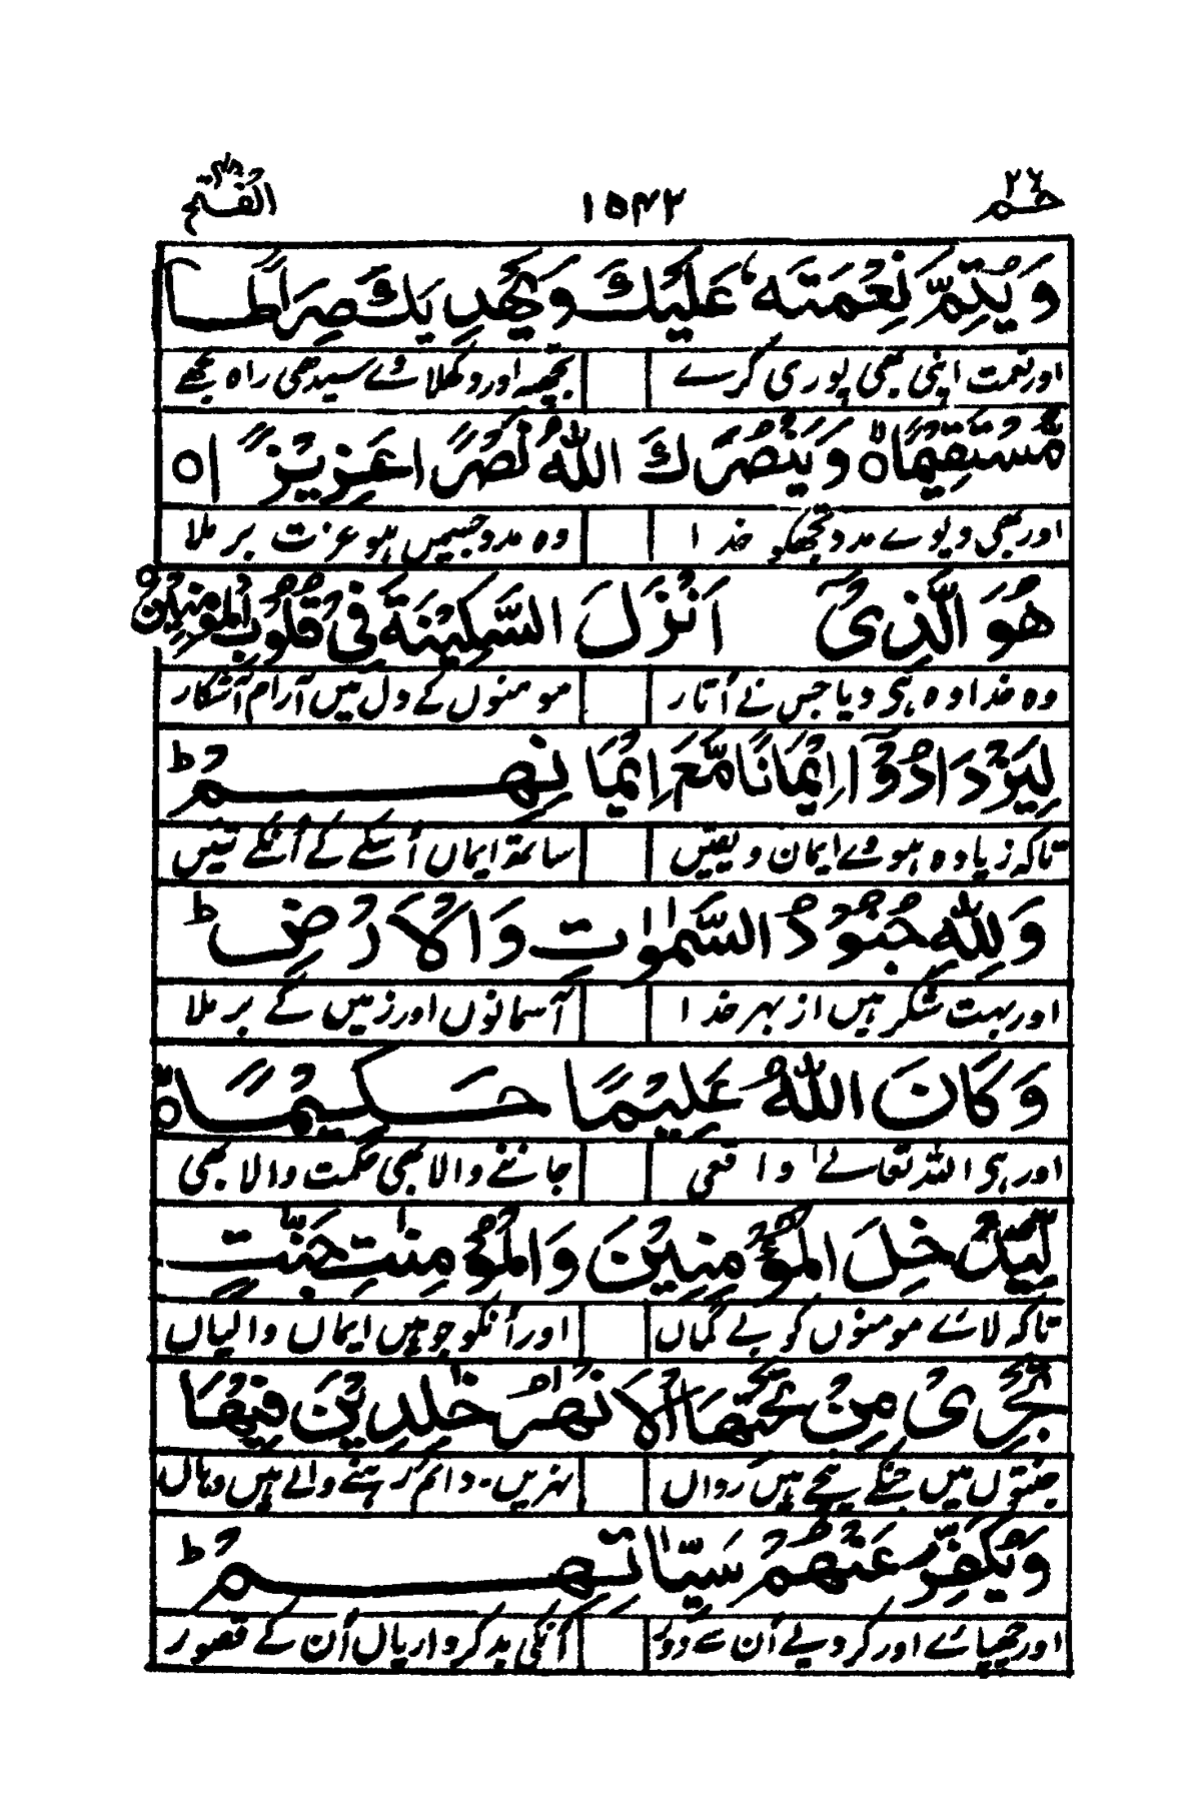 حٰم ٢٦ ١٥٤٣ الفتح ٤٨
وَيُتِمَّ نِعْمَتَهٗ عَلَيْكَ وَيَهْدِيَكَ صِرَاطًا
اور نعمت اپنی بھی پوری کرے تجھپہ اور دکھلائے سیدھی راہ تجھے
مُّسْتَقِيْمًا ۝ وَّيَنْصُرَكَ اللّٰهُ نَصْرًا عَزِيْزًا ۝
اور بھی دیوے مدد تجھکو خدا وہ مدد جسمیں ہو عزت بر ملا
هُوَ الَّذِيْٓ اَنْزَلَ السَّكِيْنَةَ فِيْ قُلُوْبِ الْمُؤْمِنِيْنَ
وہ خدا وہ ہی دیا جس نے اُتار مومنوں کے دل میں آرام آشکار
لِيَزْدَادُوْٓا اِيْمَانًا مَّعَ اِيْمَانِهِمْ ط
تاکہ زیادہ ہووے ایمان و یقیں ساتھ ایماں اُسکے کے اُنکے تئیں
وَلِلّٰهِ جُنُوْدُ السَّمٰوٰتِ وَالْاَرْضِ ط
اور بہت لشکر ہیں از بہر خدا آسمانوں اور زمیں کے بر ملا
وَكَانَ اللّٰهُ عَلِيْمًا حَكِيْمًا ۝
اور ہی اللہ تعالےٰ واقعی جاننے والا بھی حکمت والا بھی
لِّيُدْخِلَ الْمُؤْمِنِيْنَ وَالْمُؤْمِنٰتِ جَنّٰتٍ
تاکہ لائے مومنوں کو بے گماں اور اُنکو جو ہیں ایماں والیاں
تَجْرِيْ مِنْ تَحْتِهَا الْاَنْهٰرُ خٰلِدِيْنَ فِيْهَا
جنتوں میں جنکے نیچے ہیں رواں نہریں۔ دائم رہنے والے ہیں وہاں
وَيُكَفِّرَ عَنْهُمْ سَيِّاٰتِهِمْ ط
اور چھپائے اور کر دیے اُن سے دور اُنکی بد کرداریاں اُن کے قصور